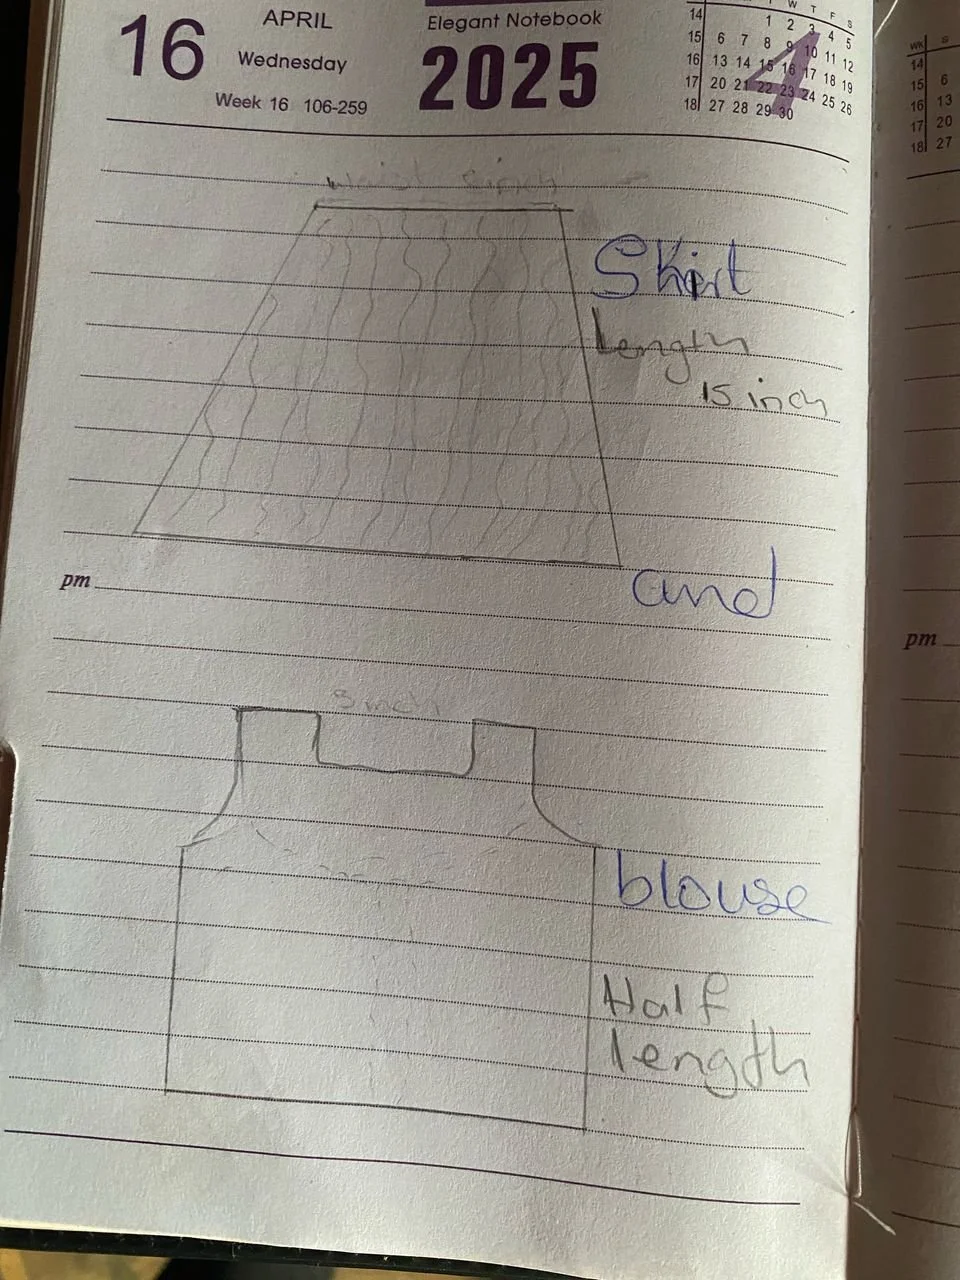 16
APRIL
Wednesday
Week 16 106-259
Elegant Notebook
2025
W T F S
14 1 2 3 4 5
15 6 7 8 9 10 11 12
16 13 14 15 16 17 18 19
17 20 21 22 23 24 25 26
18 27 28 29 30
4
WK S
14
15 6
16 13
17 20
18 27
Skirt
Length
15 inch
and
pm
pm
3 inch
blouse
Half
length